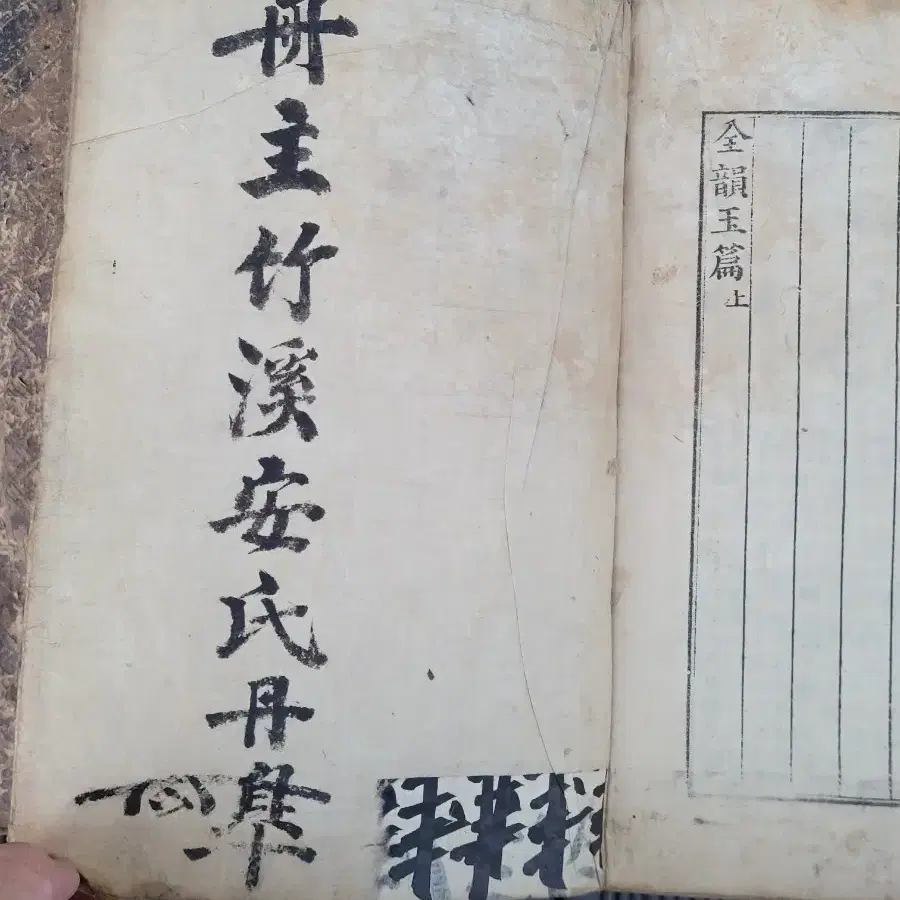 全韻玉篇 上
冊主竹溪安氏丹